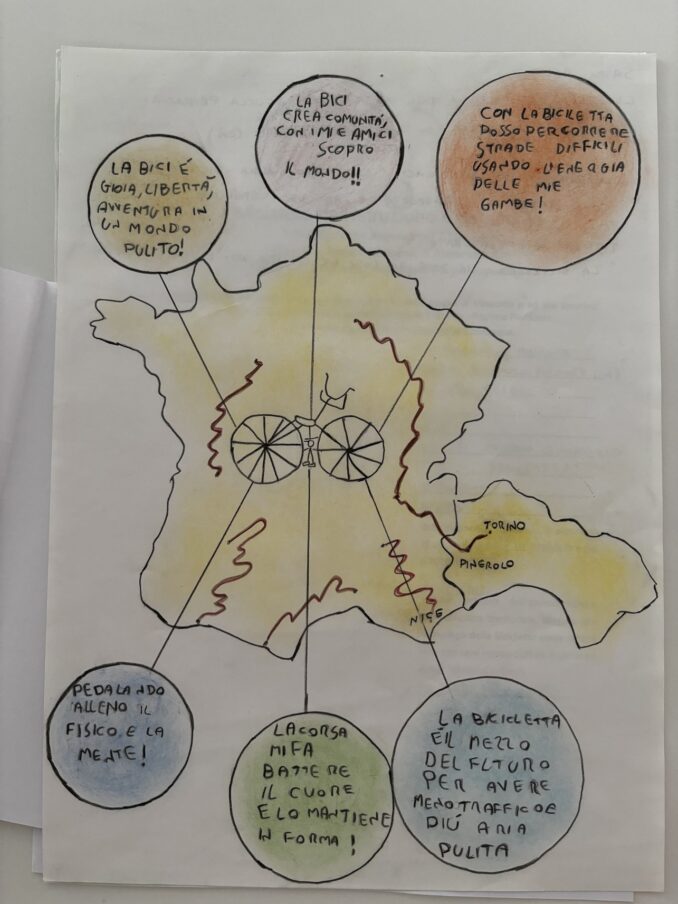 LA BICI É
GIOIA, LIBERTÁ,
AVVENTURA IN
UN MONDO
PULITO!
LA BICI
CREA COMUNITÁ,
CON I MIE AMICI
SCOPRO
IL MONDO!!
CON LA BICILETTA
POSSO PERCORRERE
STRADE DIFFICILI
USANDO L'ENERGIA
DELLE MIE
GAMBE!
TORINO
PINEROLO
NICE
PEDALANDO
ALLENO IL
FISICO E LA
MENTE!
LA CORSA
MI FA
BATTERE
IL CUORE
E LO MANTIENE
IN FORMA!
LA BICICLETTA
É IL MEZZO
DEL FUTURO
PER AVERE
MENO TRAFFICO E
PIÚ ARIA
PULITA